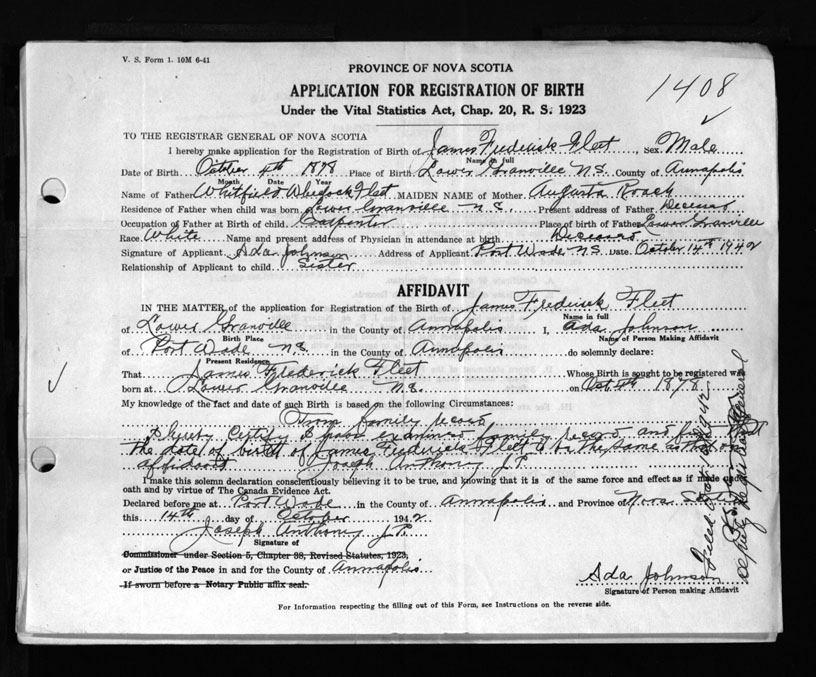 V. S. Form 1. 10M 6-41
PROVINCE OF NOVA SCOTIA
APPLICATION FOR REGISTRATION OF BIRTH
Under the Vital Statistics Act, Chap. 20, R. S. 1923
1408
TO THE REGISTRAR GENERAL OF NOVA SCOTIA
I hereby make application for the Registration of Birth of James Frederick Fleet, Sex Male
Name in full
Date of Birth October 4th 1878 Place of Birth Lower Granville N.S. County of Annapolis
Month Date Year
Name of Father Whitfield Wheelock Fleet MAIDEN NAME of Mother Augusta Roach
Residence of Father when child was born Lower Granville N.S. Present address of Father Deceased
Occupation of Father at Birth of child Carpenter Place of birth of Father Lower Granville
Race White Name and present address of Physician in attendance at birth Deceased
Signature of Applicant Ada Johnson Address of Applicant Port Wade N.S. Date October 14th 1942
Relationship of Applicant to child Sister
AFFIDAVIT
IN THE MATTER of the application for Registration of the Birth of James Frederick Fleet
Name in full
of Lower Granville in the County of Annapolis I, Ada Johnson
Birth Place Name of Person Making Affidavit
of Port Wade N.S. in the County of Annapolis do solemnly declare:
Present Residence
That James Frederick Fleet Whose Birth is sought to be registered was
born at Lower Granville N.S. on Oct 4th 1878
My knowledge of the fact and date of such Birth is based on the following Circumstances:
From family record
I hereby Certify I have examined family record and find
the date of birth of James Frederick Fleet to be the same as that on
affidavit Joseph Anthony J.P.
I make this solemn declaration conscientiously believing it to be true, and knowing that it is of the same force and effect as if made under
oath and by virtue of The Canada Evidence Act.
Declared before me at Port Wade in the County of Annapolis and Province of Nova Scotia
this 14th day of October 1942
Joseph Anthony J.P.
Signature of
Commissioner under Section 5, Chapter 38, Revised Statutes, 1923,
or Justice of the Peace in and for the County of Annapolis
If sworn before a Notary Public affix seal.
Ada Johnson
Signature of Person making Affidavit
For Information respecting the filling out of this Form, see Instructions on the reverse side.
Deputy Registrar General